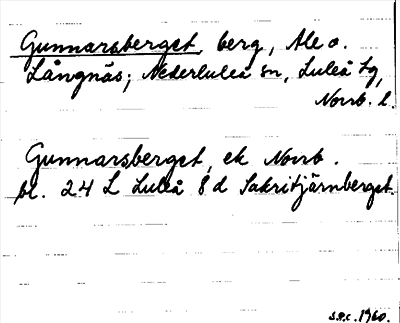 Gunnarsberget, berg, Ale o.
Långnäs; Nederluleå sn, Luleå tg,
Norrb. l.
Gunnarsberget, ek Norrb.
bl. 24 L Luleå 8 d Sakritjärnberget.
s.e.c. 1960.